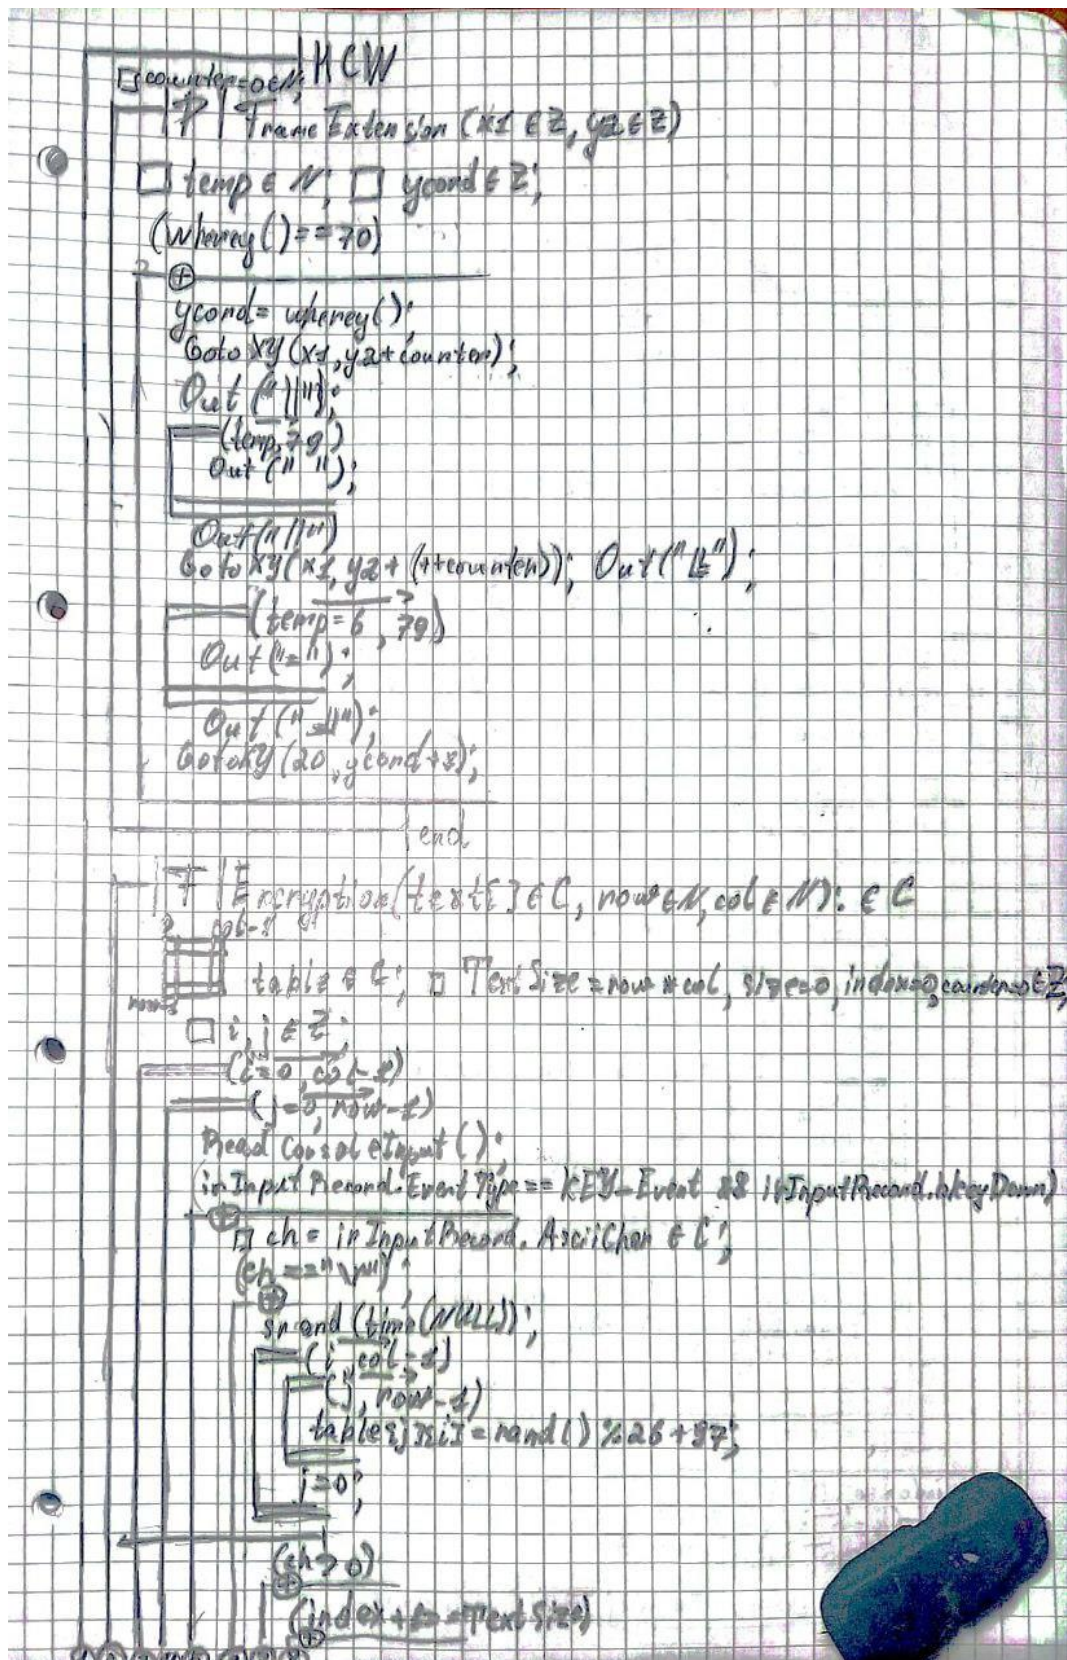 HCW
counter=0∈N;
P | Frame Extension (x1 ∈ Z, y2 ∈ Z)
temp ∈ N; ycord ∈ Z;
(wherey()==70)
+
ycord = wherey();
Goto XY (x1, y2+counter);
Out ("||");
(temp, 79)
Out (" ");
Out("||")
Goto XY(x1, y2+(++counter)); Out("╚");
(temp=6, 79)
Out("=");
Out("╝");
GotoXY(20, ycord+3);
end
F | Encryption(text[] ∈ C, row∈N, col∈N): ∈ C
col-1
table ∈ C; TextSize=row*col, size=0, index=0, counter=0∈Z;
row-1
i, j ∈ Z;
(i=0, col-1)
(j=0, row-1)
Read ConsoleInput();
(irInputRecord.EventType== KEY_Event && irInputRecord.bKeyDown)
+
ch = irInputRecord.AsciiChar ∈ C;
(ch=="\r")
+
srand(time(NULL));
(i, col-1)
(j, row-1)
table[j][i]=rand()%26+97;
j=0;
(ch>0)
+
(index+1==TextSize)
+